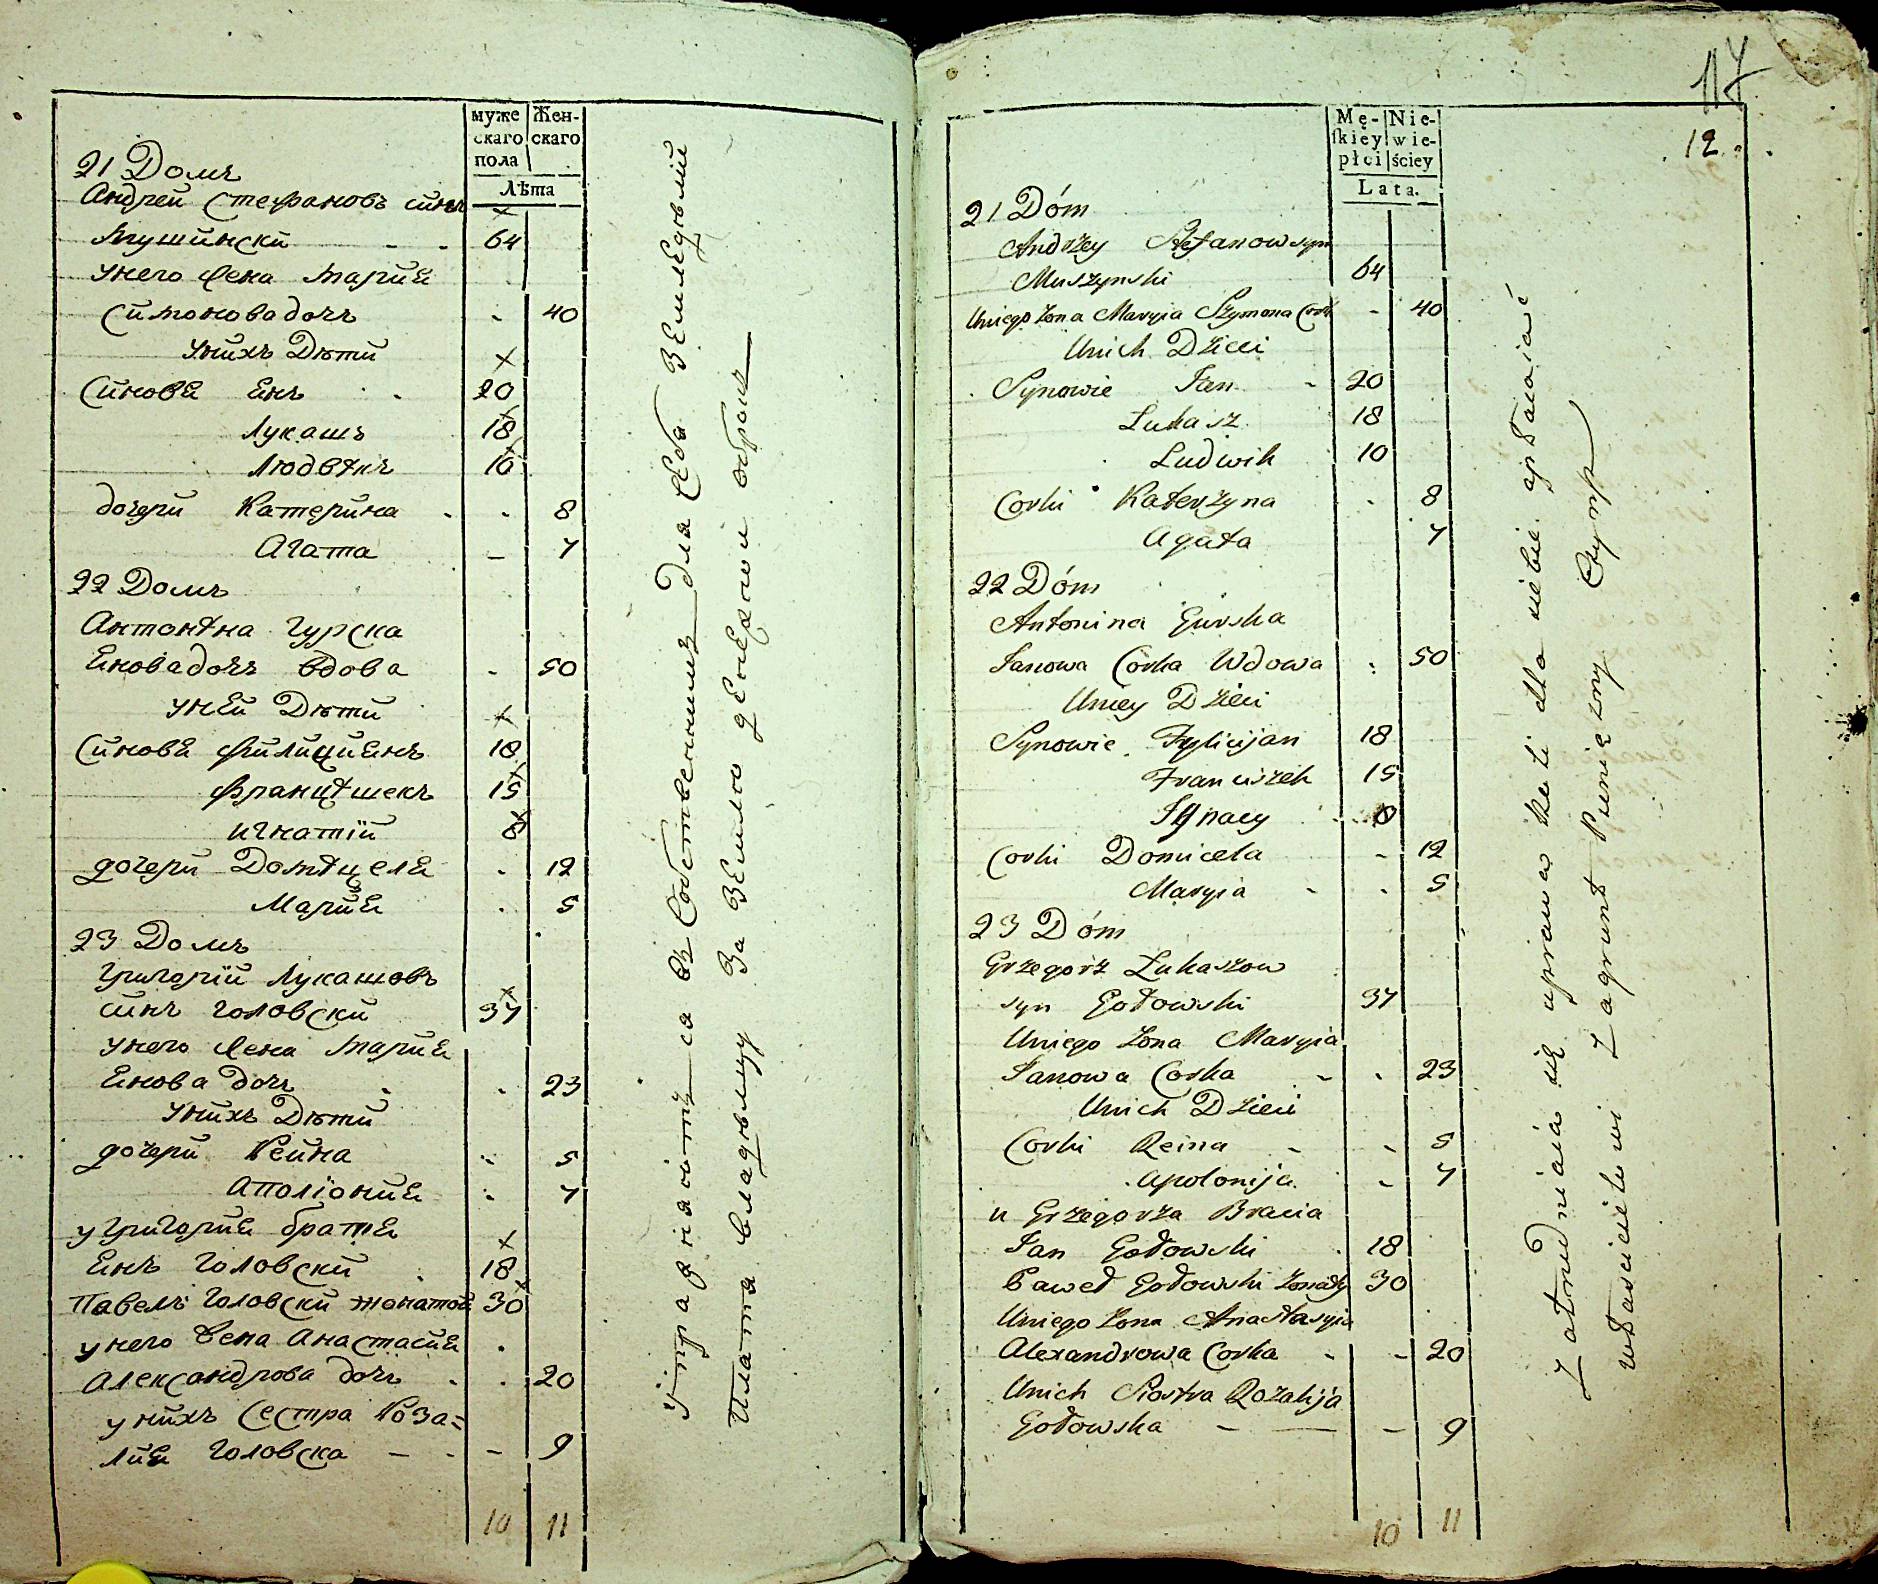 муже
скаго
пола
Жен-
скаго
Лѣта
21 Домъ
Андрей Стефановъ синъ
Мушински - - 64
унего жена Марие
Симонова дочъ - 40
унихъ Дѣти
Синове Енъ - 20
Лукашъ 18
Людвикъ 10
дочери Катерина - - 8
Агата - 7
22 Домъ
Антонина Гурска
Енова дочъ вдова - 50
уней Дѣти
Синове Филициенъ 18
Францишекъ 15
игнатiй 8
дочери Домицеле - 12
Марие - 5
23 Домъ
Григорiй Лукашовъ
синъ Головски 37
унего жена Марие
Енова дочъ - - 23
унихъ Дѣти
дочери Реина - 5
Аполiоние - 7
у Григорие братя
Енъ Головски - 18
Павелъ Головски жонатой 30
унего жена Анастасие -
Александрова дочъ - - 20
унихъ Сестра Роза=
лие Головска - - - 9
10 11
Упражняютъ ся въ Собственнимъ для себа Земледѣлiи
Плата владѣлцу За Землю денежной оброкъ
117
12
Mę-
skiey
płci
Nie-
wie-
ściey
Lata.
21 Dóm
Andrzey Stefanow syn
Muszynski 64
Uniego Zona Maryia Szymona Cork - 40
Unich Dzieci
Synowie Jan - 20
Lukasz 18
Ludwik 10
Corki Katerzyna - 8
Agata 7
22 Dóm
Antonina Gurska
Janowa Corka Wdowa - 50
Uniey Dzieci
Synowie Felicijan 18
Franciszek 15
Ignacy - 8
Corki Domicela - 12
Maryia - - 5
23 Dóm
Grzegorz Łukaszow
syn Gołowski 37
Uniego Zona Maryia
Janowa Corka - - 23
Unich Dzieci
Corki Reina - - 5
Apolonija - 7
u Grzegorza Bracia
Jan Gołowski - 18
Paweł Gołowski Zonaty 30
Uniego Zona Anastasyia
Alexandrowa Corka - - 20
Unich Siostra Rozalija
Gołowska - - - 9
10 11
Zatrudniaia się uprawa dla siebie opłaiaić
właścicielowi Zagrunt Pieniężny Czynsz